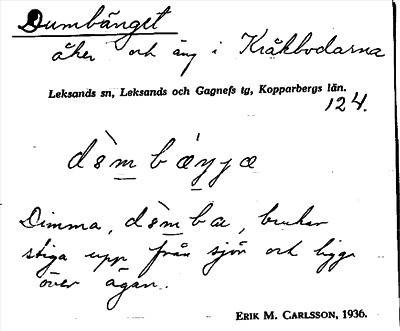 Dumbänget
åker och äng i Kråkbodarna
Leksands sn, Leksands och Gagnefs tg, Kopparbergs län.
124.
dèm b ǽŋŋæ
Dimma, dèmba, brukar
stiga upp från sjön och ligga
över ägan.
ERIK M. CARLSSON, 1936.